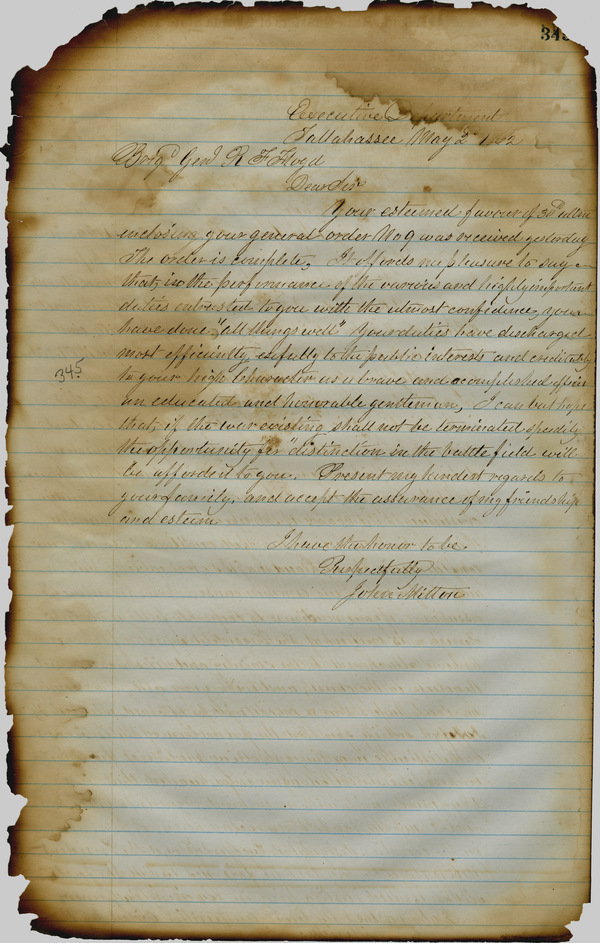 345
Executive Department
Tallahassee May 2d 1862
Brigd Genl R F Floyd
Dear Sir
Your esteemed favour of 30th ultimo
enclosing your general order No 9 was received yesterday
The order is complete, It affords me pleasure to say
that, in the performance of the various and highly important
duties entrusted to you with the utmost confidence, you
have done "all things well" Your duties have discharged
most efficiently, usefully to the public interests and creditably
345
to your high Character as a brave and accomplished officer
an educated and honorable gentleman, I can but hope
that, if the war existing shall not be terminated speedily
the opportunity "for" distinction in the battle field will
be afforded to you. Present my kindest regards to
your family, and accept the assurance of my friendship
and esteem
I have the honor to be
Respectfully
John Milton